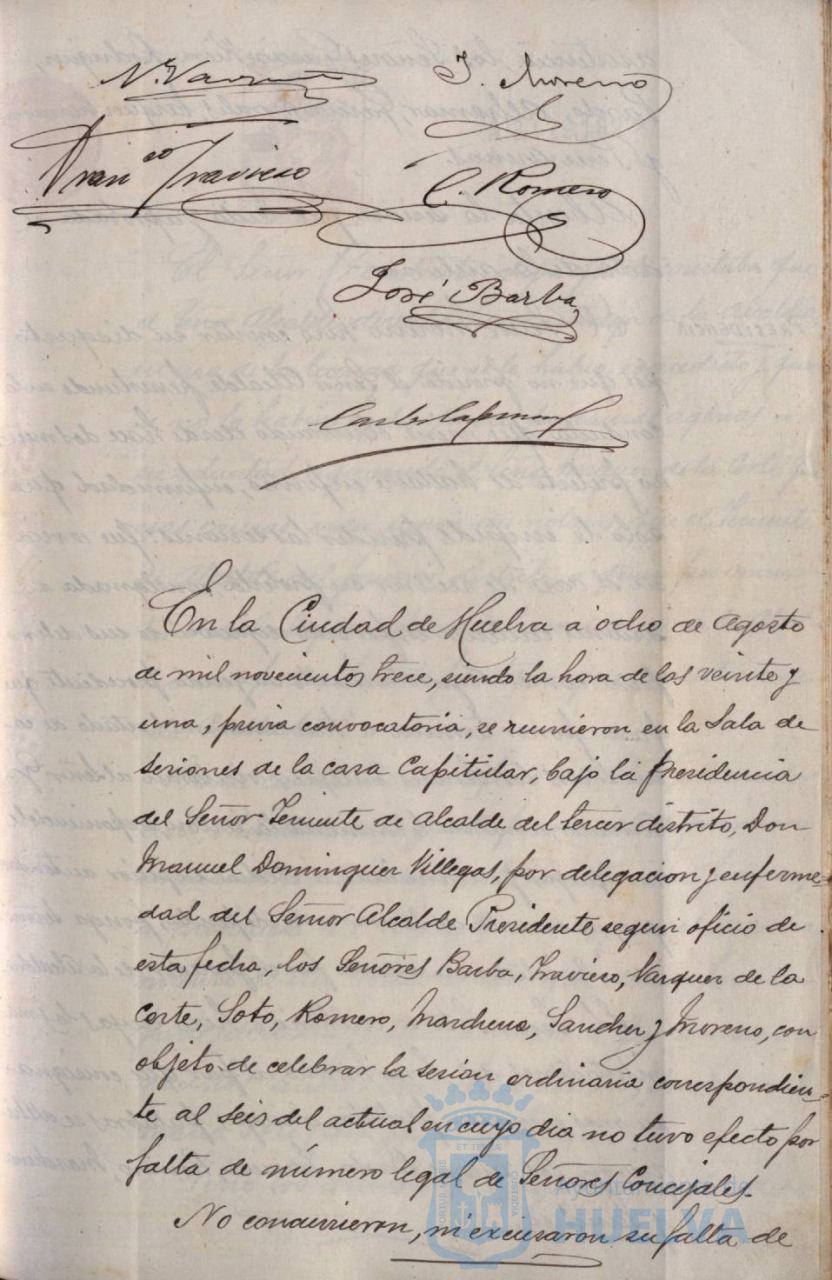 J. Moreno
Fran.co Travieso
C. Romero
José Barba
En la Ciudad de Huelva a ocho de Agosto
de mil novecientos trece, siendo la hora de las veinte y
una, previa convocatoria, se reunieron en la Sala de
sesiones de la casa Capitular, bajo la Presidencia
del Señor Teniente de Alcalde del tercer distrito, Don
Manuel Dominguez Villegas, por delegacion y enferme-
dad del Señor Alcalde Presidente segun oficio de
esta fecha, los Señores Barba, Travieso, Vazquez de la
Corte, Soto, Romero, Marchena, Sanchez y Moreno, con
objeto de celebrar la sesion ordinaria correspondien-
te al seis del actual en cuyo dia no tuvo efecto por
falta de número legal de Señores Concejales.
No concurrieron, ni excusaron su falta de
HUELVA